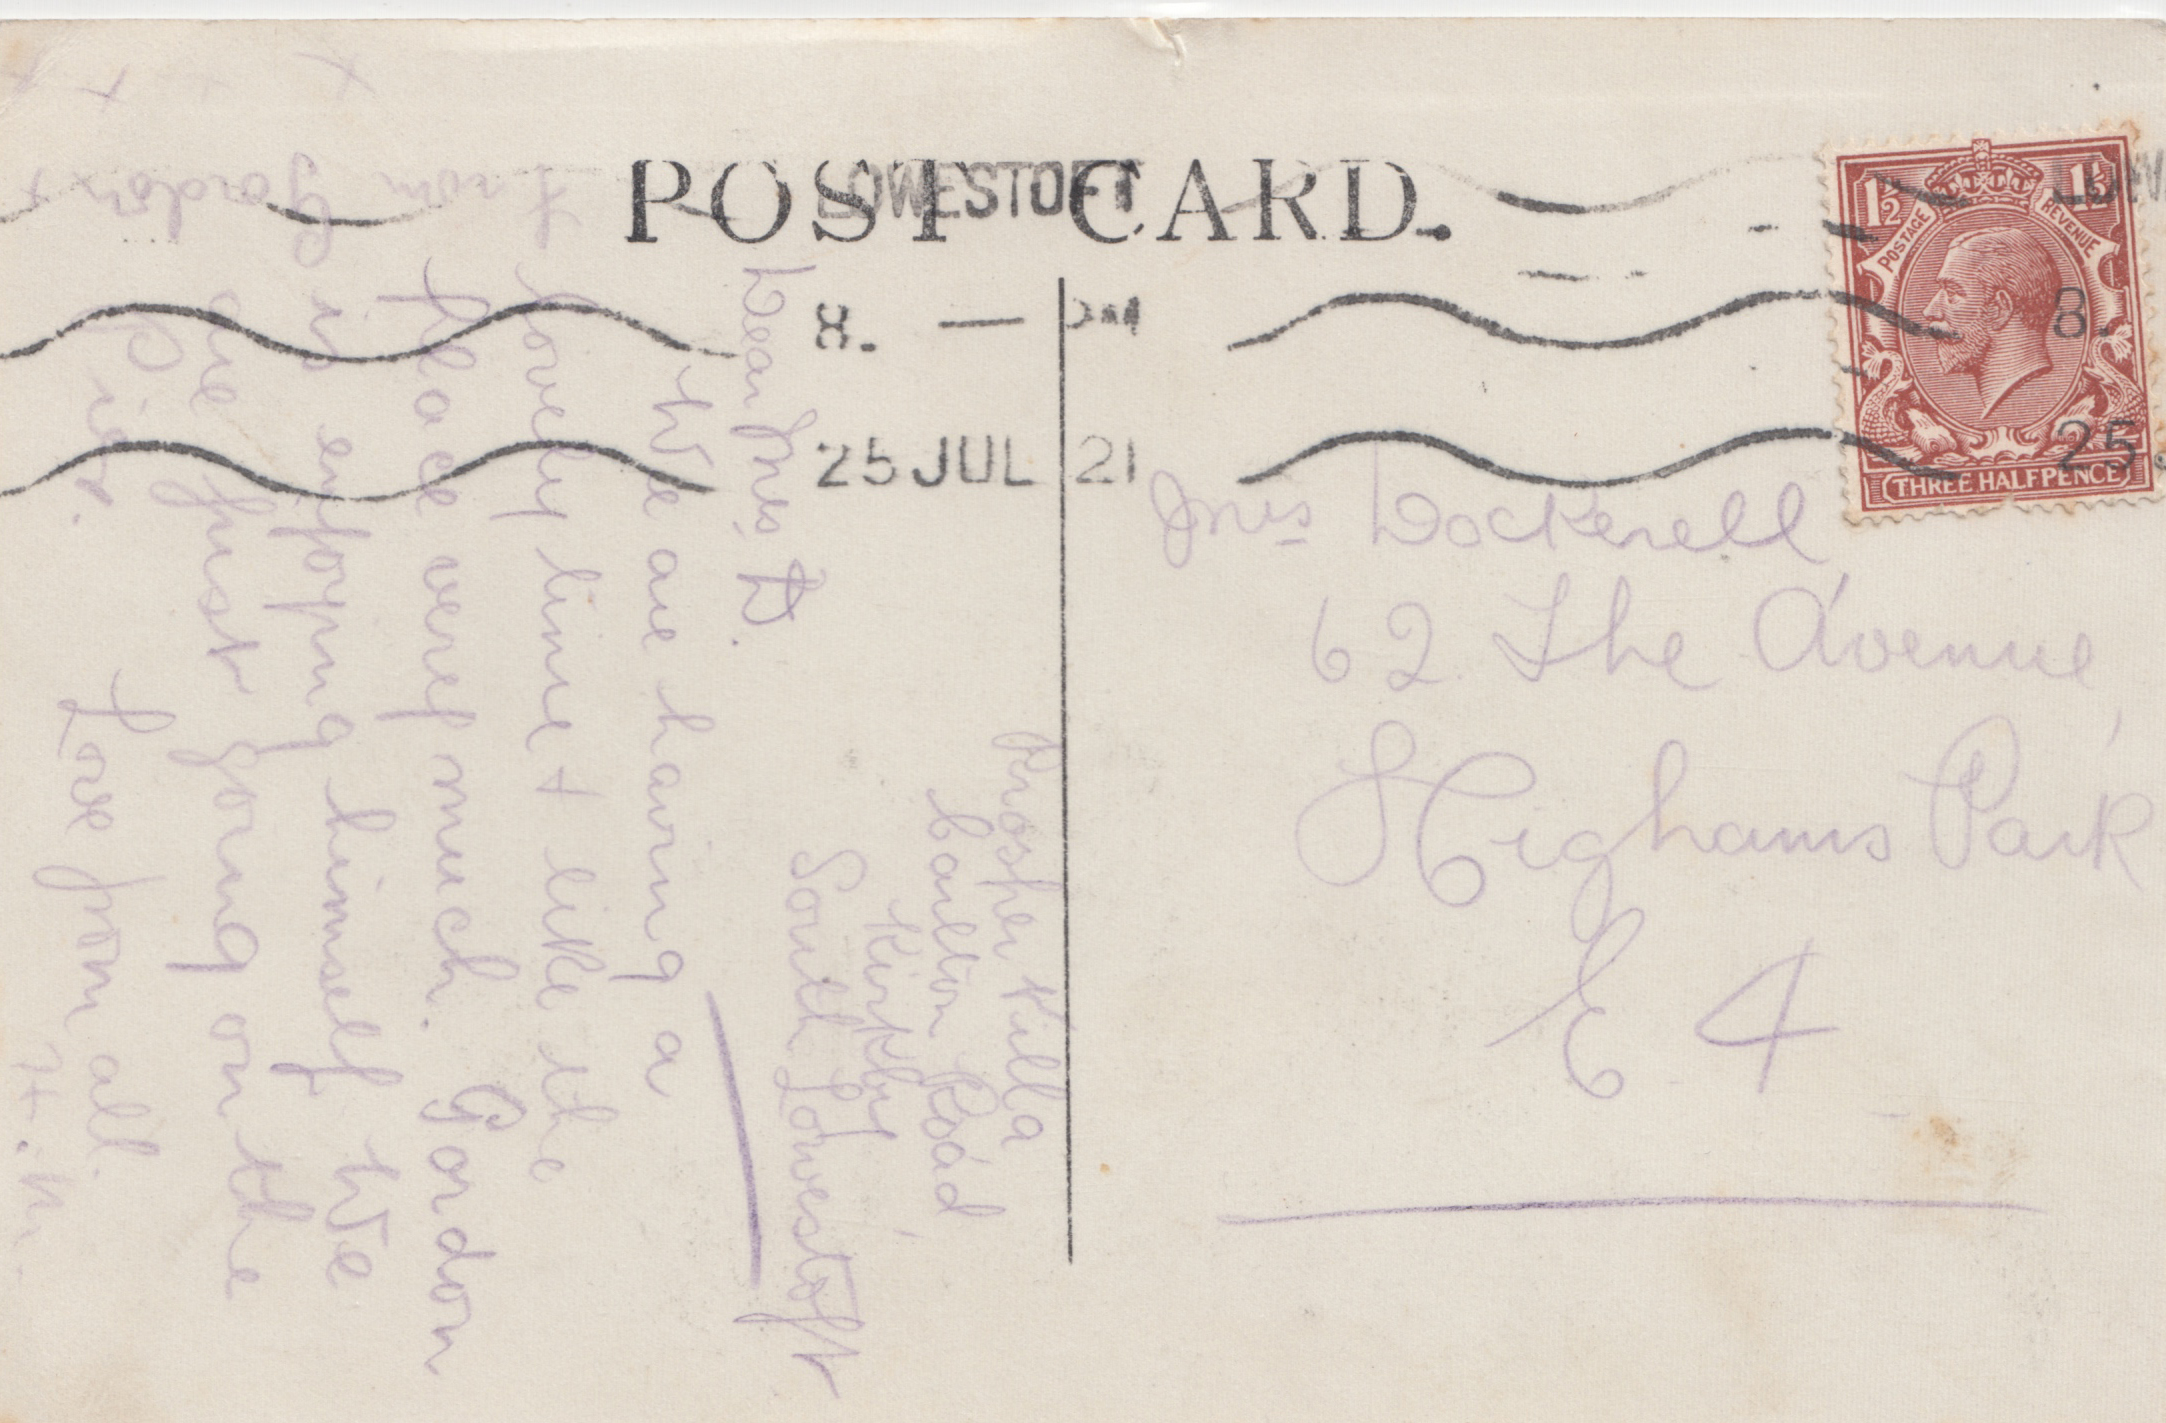 POST CARD.
LOWESTOFT
8. — PM
25 JUL 21
1½ 1½
POSTAGE REVENUE
THREE HALFPENCE
8.
25.
Mrs Dockerell
62 The Avenue,
Highams Park
E 4
Prosper Villa
Carlton Road
Kirkby,
South Lowestoft
Dear Mrs D.
We are having a
lovely time & like the
place very much. Gordon
is enjoying himself We
are just going on the
Pier.
Love from all.
H. M.
from Gordon
x x x